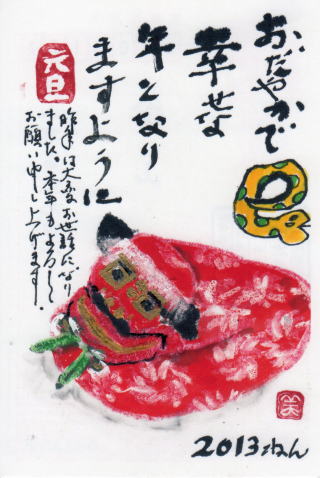 おだやかで
幸せな
年となり
ますように
元旦
昨年は大変お世話になり
ました。本年もよろしく
お願い申し上げます。
美
2013ねん